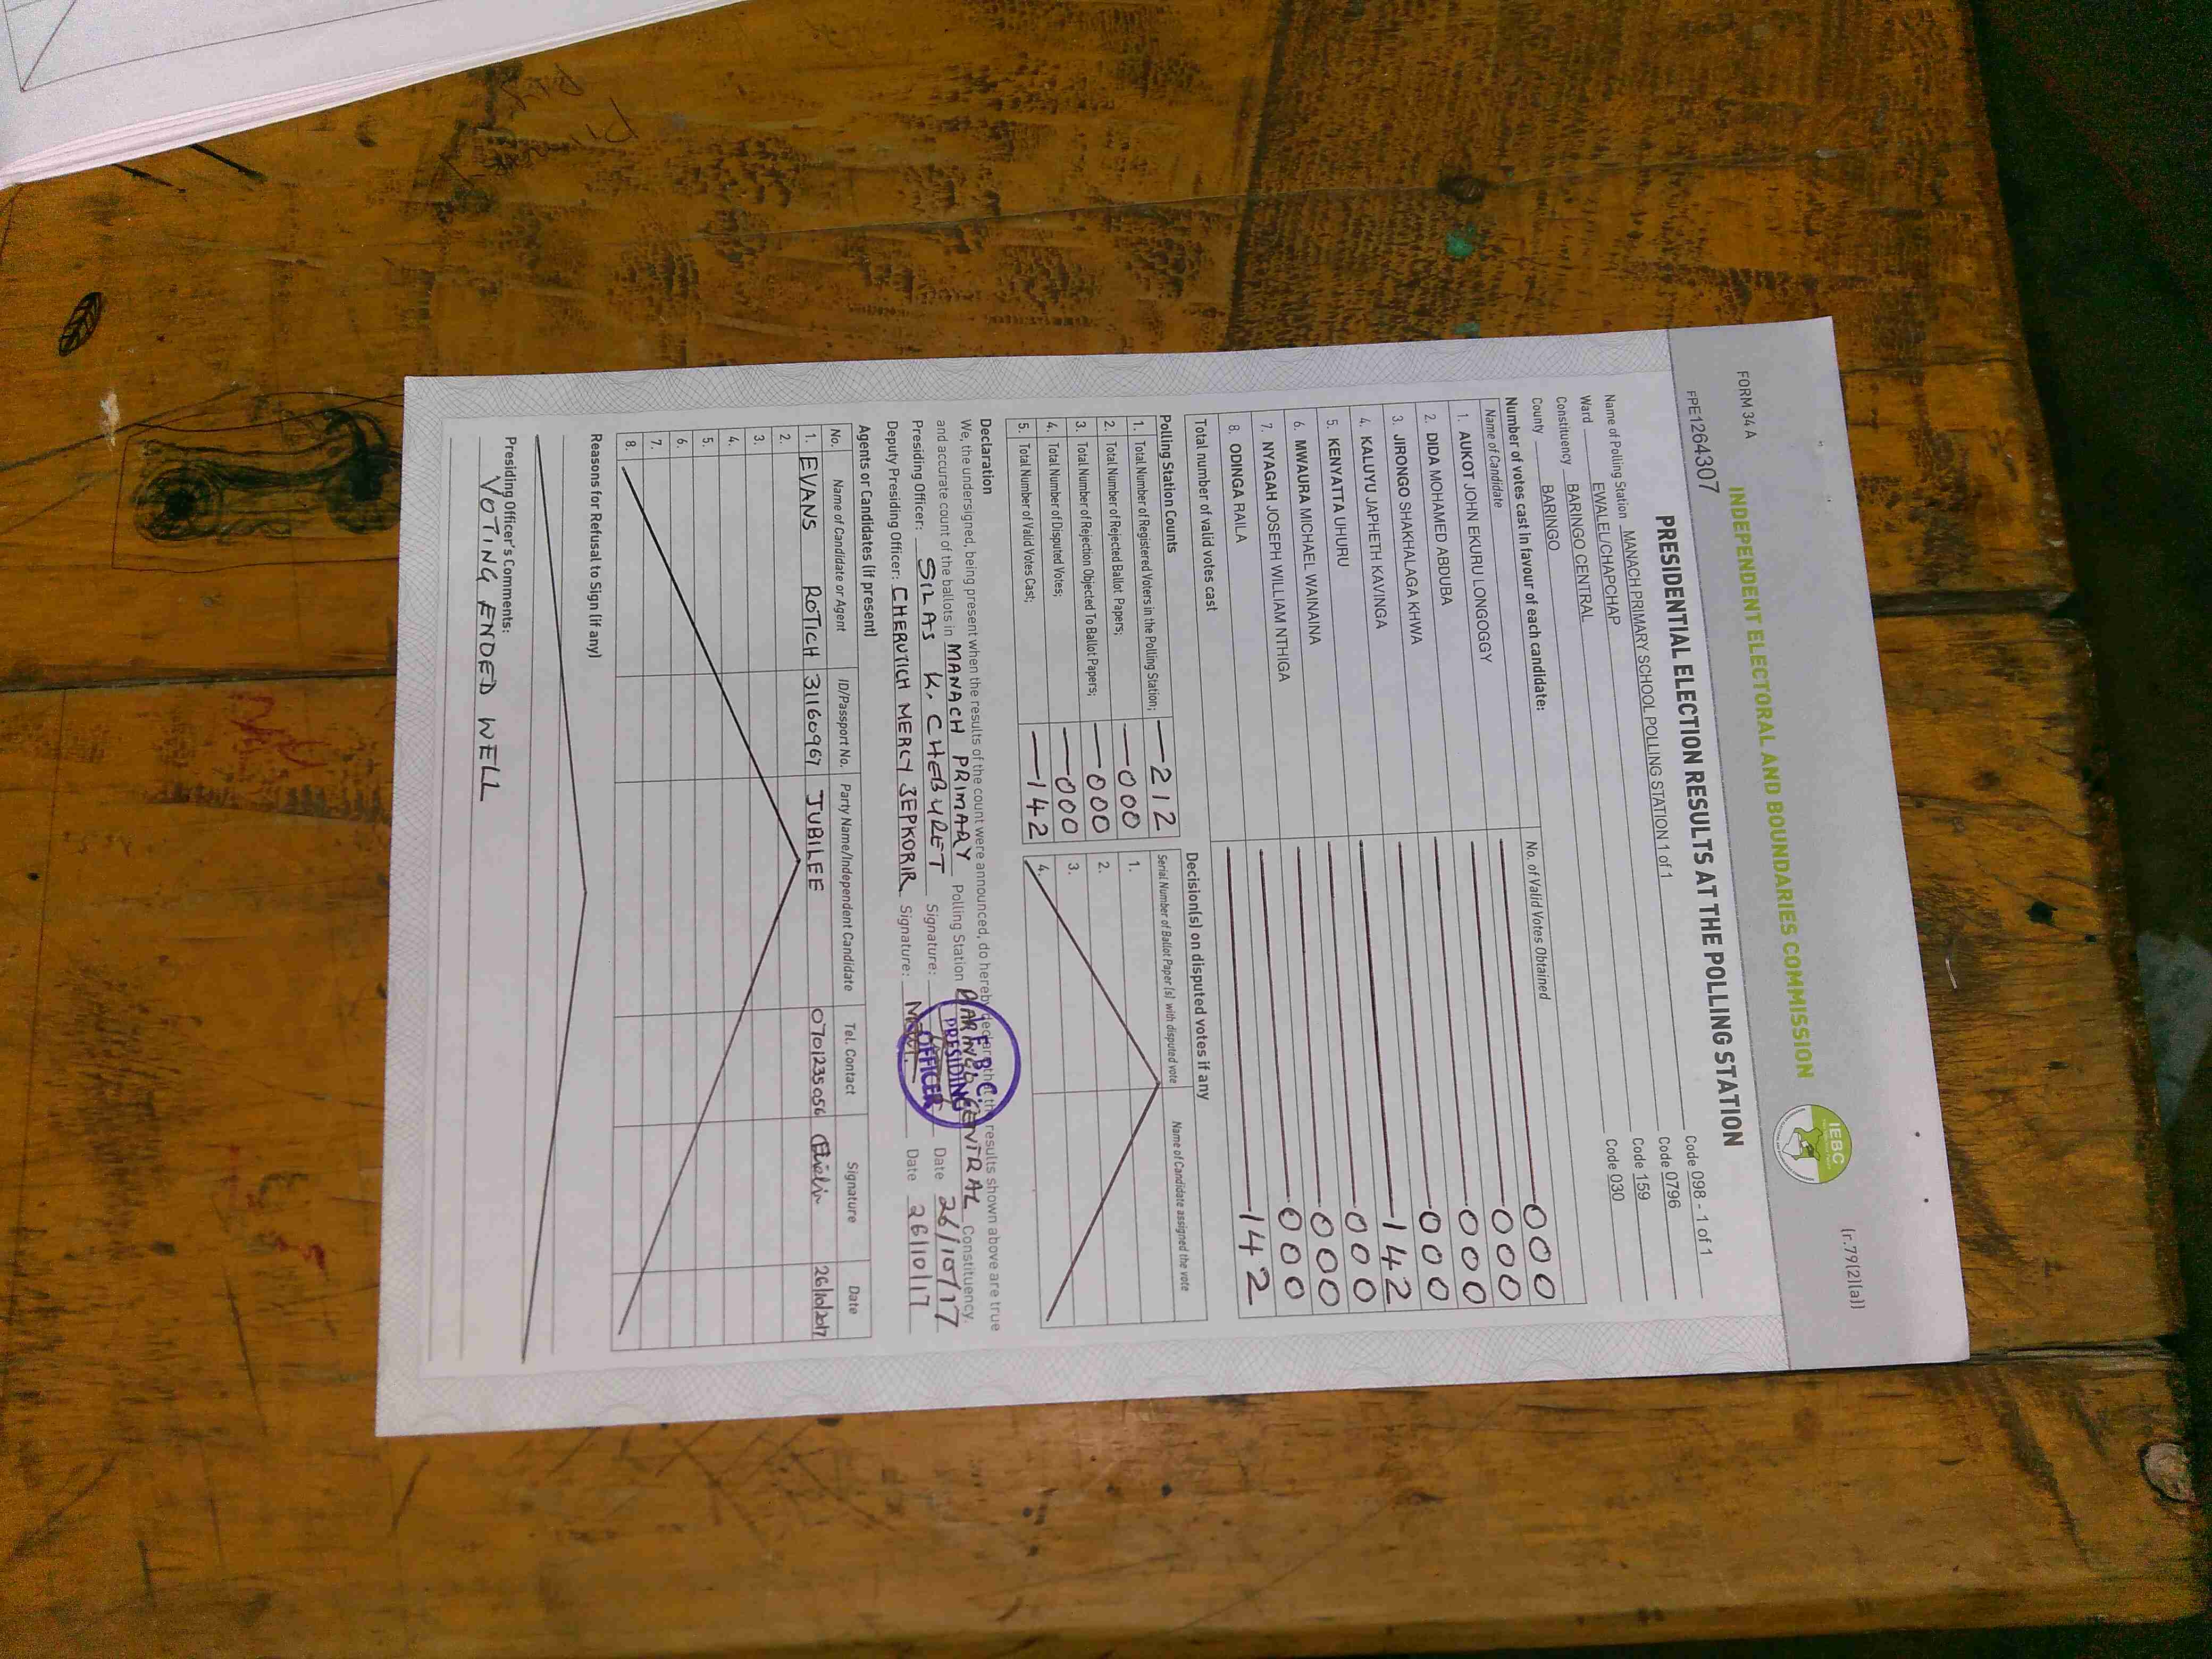 FORM 34 A
(r.79(2)(a))
INDEPENDENT ELECTORAL AND BOUNDARIES COMMISSION
IEBC
PRESIDENTIAL ELECTION RESULTS AT THE POLLING STATION
FPE1264307
Name of Polling Station MANACH PRIMARY SCHOOL POLLING STATION 1 of 1 Code 098 - 1 of 1
Ward EWALEL/CHAPCHAP Code 0796
Constituency BARINGO CENTRAL Code 159
County BARINGO Code 030
Number of votes cast in favour of each candidate:
Name of Candidate No. of Valid Votes Obtained
1. AUKOT JOHN EKURU LONGOGGY 000
2. DIDA MOHAMED ABDUBA 000
3. JIRONGO SHAKHALAGA KHWA 000
4. KALUYU JAPHETH KAVINGA 000
5. KENYATTA UHURU 142
6. MWAURA MICHAEL WAINAINA 000
7. NYAGAH JOSEPH WILLIAM NTHIGA 000
8. ODINGA RAILA 000
Total number of valid votes cast 142
Polling Station Counts
1. Total Number of Registered Voters in the Polling Station; 212
2. Total Number of Rejected Ballot Papers; 000
3. Total Number of Rejection Objected To Ballot Papers; 000
4. Total Number of Disputed Votes; 000
5. Total Number of Valid Votes Cast; 142
Decision(s) on disputed votes if any
Serial Number of Ballot Paper (s) with disputed vote Name of Candidate assigned the vote
1.
2.
3.
4.
Declaration
We, the undersigned, being present when the results of the count were announced, do hereby declare that the results shown above are true
and accurate count of the ballots in MANACH PRIMARY Polling Station BARINGO CENTRAL Constituency.
Presiding Officer: SILAS K. CHEBURET Signature: Date 26/10/17
Deputy Presiding Officer: CHERUTICH MERCY JEPKORIR Signature: Date 26/10/17
I.E.B.C.
PRESIDING
OFFICER
Agents or Candidates (if present)
No. Name of Candidate or Agent ID/Passport No. Party Name/Independent Candidate Tel. Contact Signature Date
1. EVANS ROTICH 31160967 JUBILEE 0701235056 26/10/2017
2.
3.
4.
5.
6.
7.
8.
Reasons for Refusal to Sign (if any)
Presiding Officer's Comments:
VOTING ENDED WELL